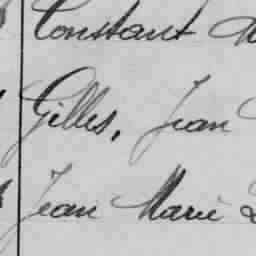 Constant
Gilles, Jean
Jean Marie